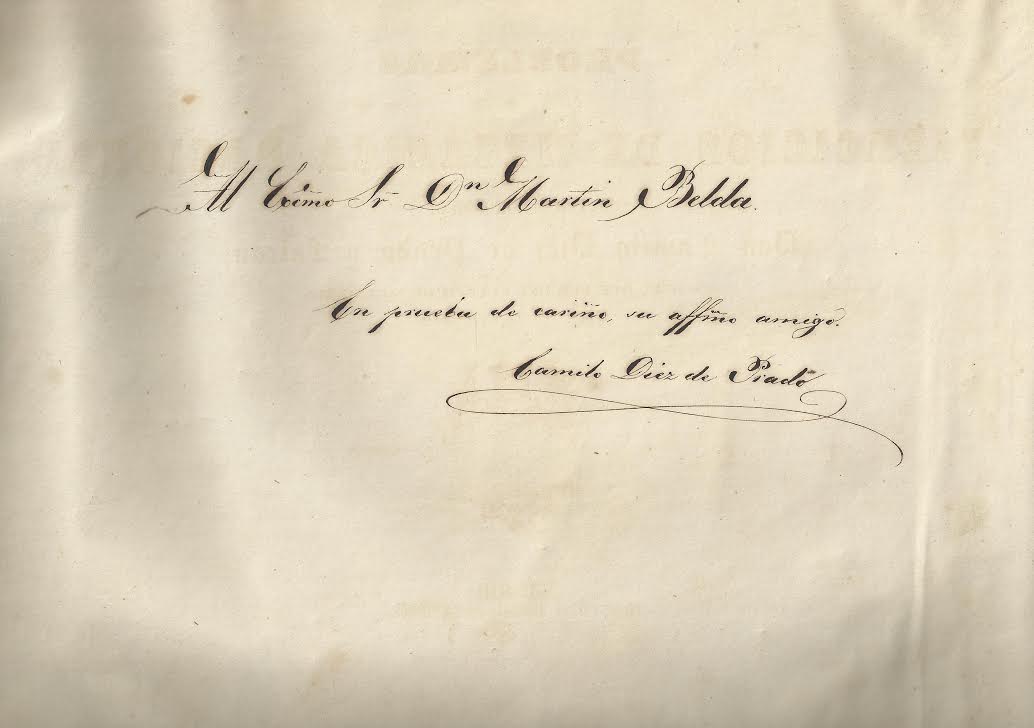 Al Exc̃mo Sr Dn Martin Belda.
En prueba de cariño, su aff̃mo amigo.
Camilo Diez de Prado